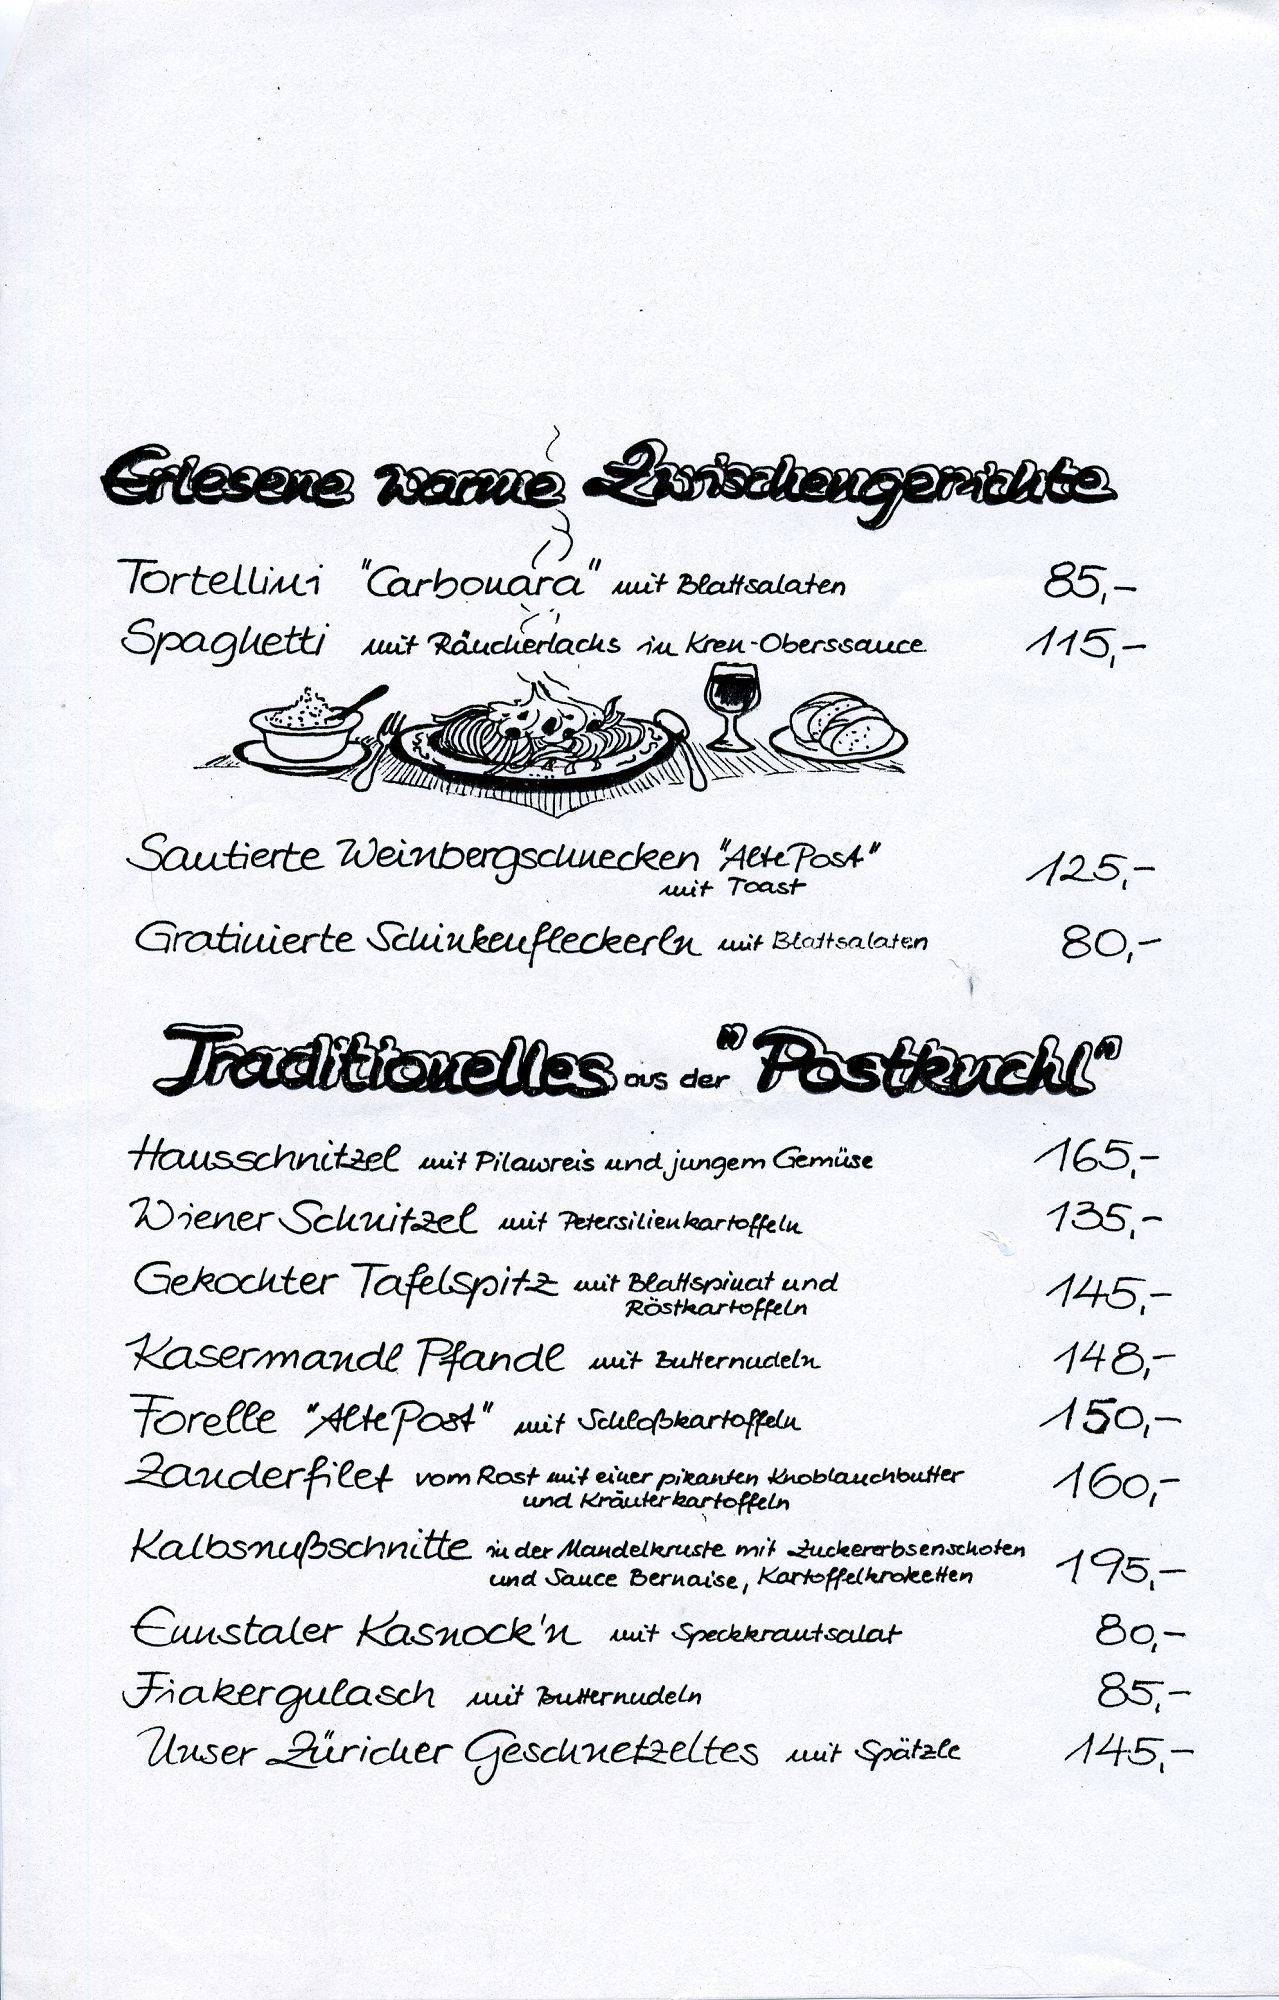 Erlesene warme Zwischengerichte
Tortellini "Carbonara" mit Blattsalaten 85,-
Spaghetti mit Räucherlachs in Kren-Oberssauce 115,-
Sautierte Weinbergschnecken "Alte Post" 125,-
mit Toast
Gratinierte Schinkenfleckerln mit Blattsalaten 80,-
Traditionelles aus der "Postkuchl"
Hausschnitzel mit Pilawreis und jungem Gemüse 165,-
Wiener Schnitzel mit Petersilienkartoffeln 135,-
Gekochter Tafelspitz mit Blattspinat und 145,-
Röstkartoffeln
Kasermandl Pfandl mit Butternudeln 148,-
Forelle "Alte Post" mit Schloßkartoffeln 150,-
Zanderfilet vom Rost mit einer pikanten Knoblauchbutter 160,-
und Kräuterkartoffeln
Kalbsnußschnitte in der Mandelkruste mit Zuckererbsenschoten 195,-
und Sauce Bernaise, Kartoffelkroketten
Ennstaler Kasnock'n mit Speckkrautsalat 80,-
Fiakergulasch mit Butternudeln 85,-
Unser Züricher Geschnetzeltes mit Spätzle 145,-